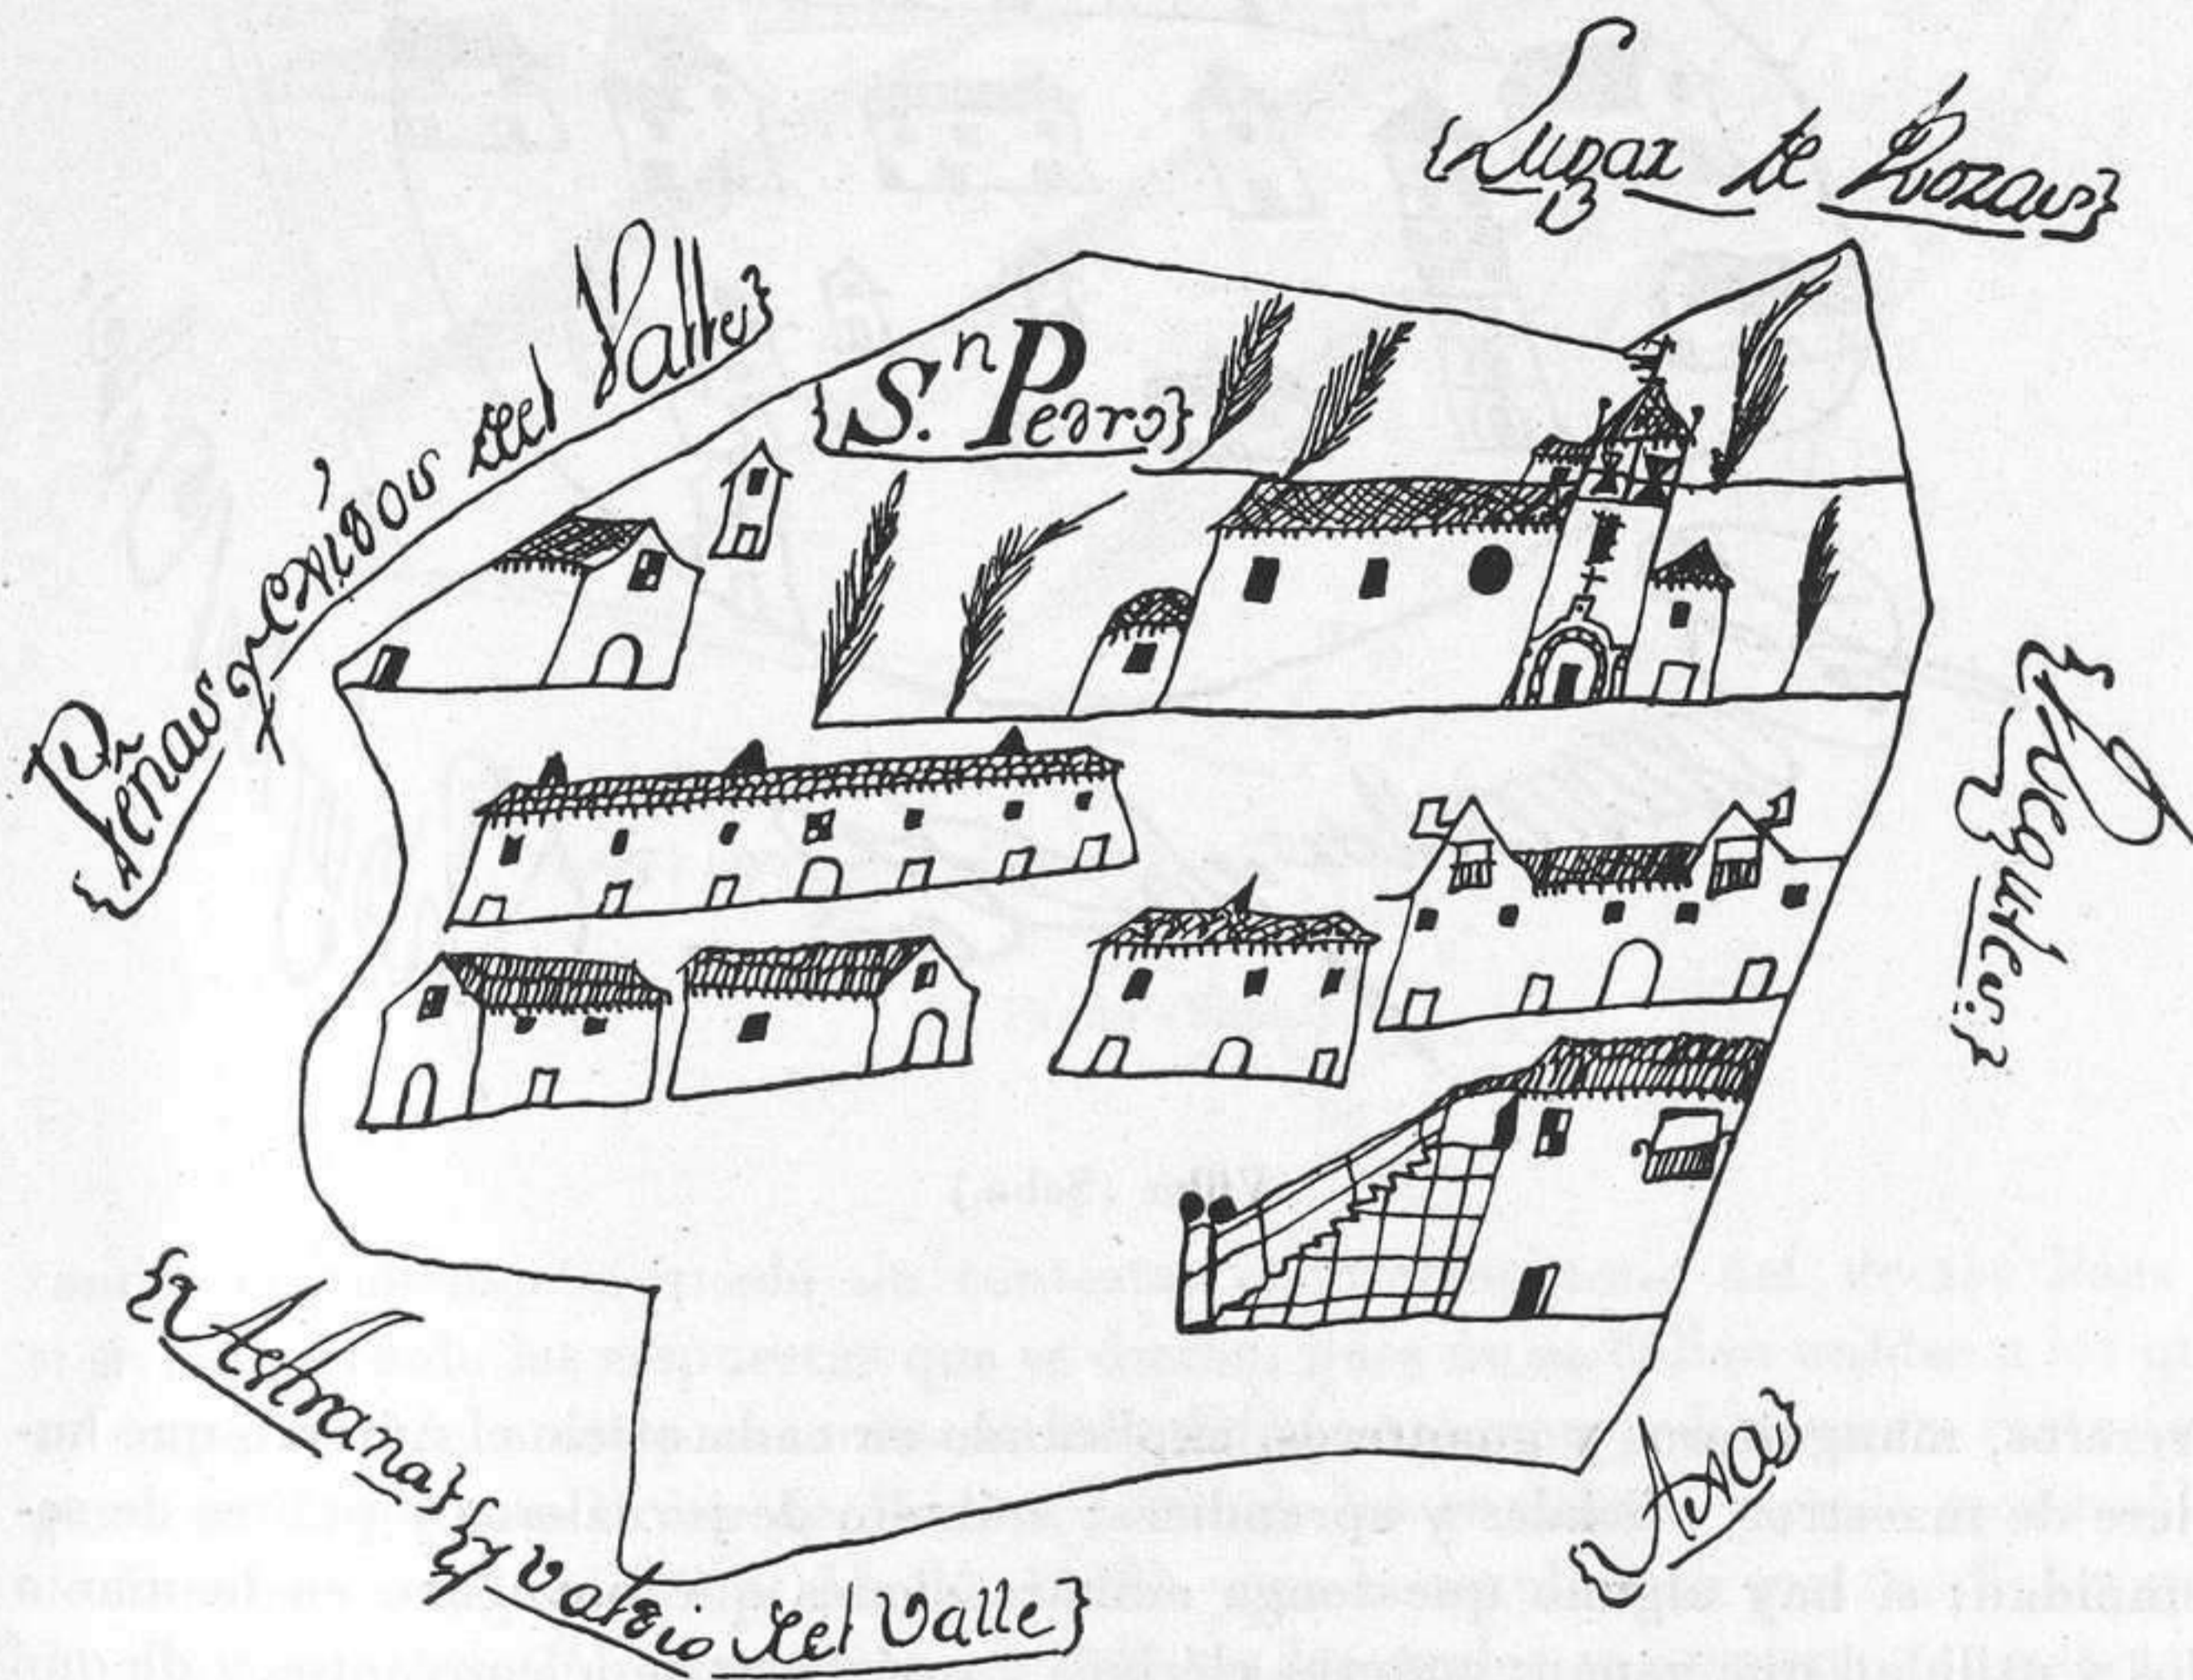 {Lugar de Rozas}
{Peñas y exidos del Valle}
{S.n Pedro}
{Regules:}
{Astrana}
{Y valdio del Valle}
{Axa}